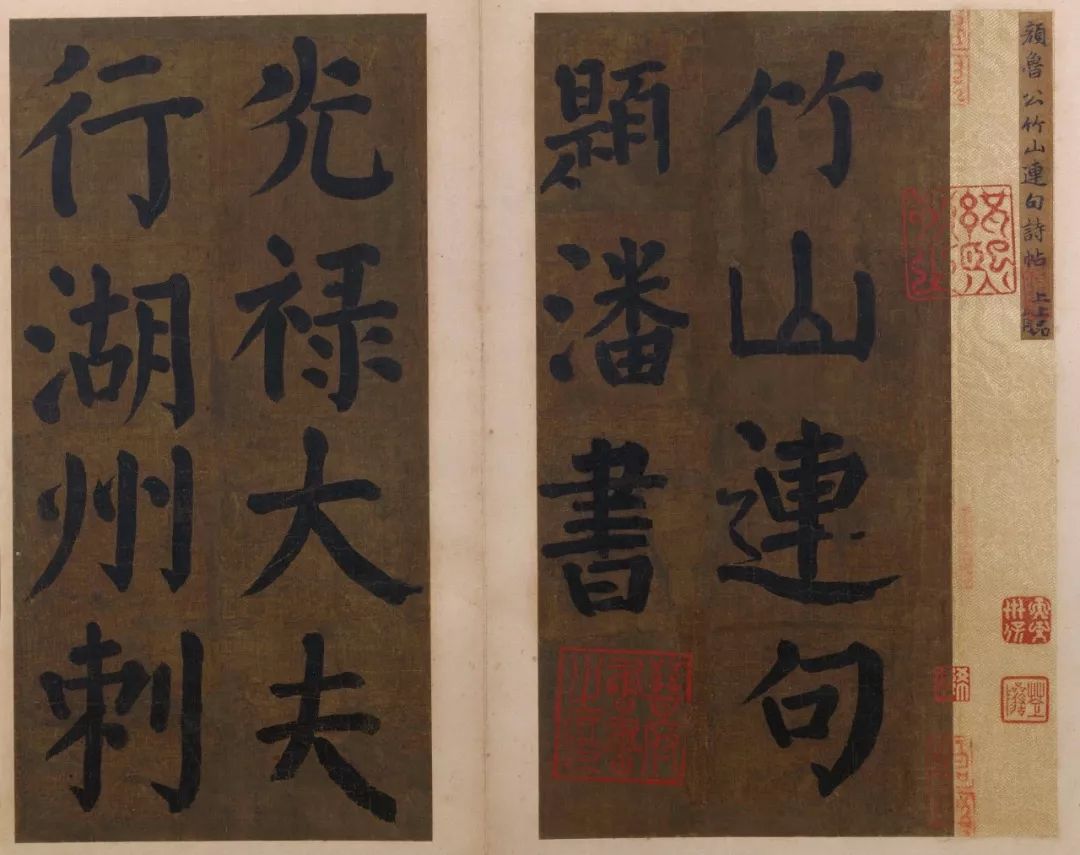 顔魯公竹山連句詩帖 上上品
竹山連句
題潘書
光禄大夫
行湖州刺